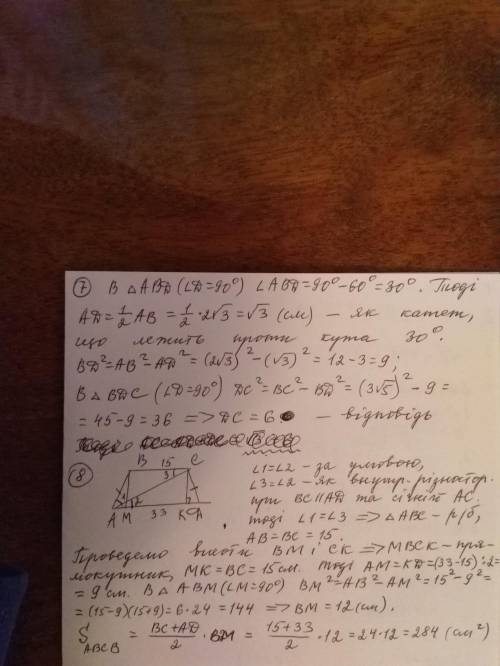 ⑦ В △ABD (∠D=90°) ∠ABD=90°-60°=30°. Тоді
AD=1/2 AB = 1/2 · 2√3 = √3 (см) – як катет,
що лежить проти кута 30°.
BD²=AB²-AD²=(2√3)²-(√3)²=12-3=9;
В △BDC (∠D=90°) DC²=BC²-BD²=(3√5)²-9=
=45-9=36 => DC=6 – відповідь
⑧ B 15 C
3
1 2
A M 33 K D
∠1=∠2 – за умовою,
∠3=∠2 – як внутр. різностор.
при BC∥AD та січній AC.
Тоді ∠1=∠3 => △ABC – р/б,
AB=BC=15.
Проведемо висоти BM і CK => MBCK – пря-
мокутник, MK=BC=15см. Тоді AM=KD=(33-15):2=
=9 см. В △ABM (∠M=90°) BM²=AB²-AM²=15²-9²=
=(15-9)(15+9)=6·24=144 => BM=12 (см).
S ABCD = (BC+AD)/2 · BM = (15+33)/2 · 12 = 24·12 = 284 (см²)